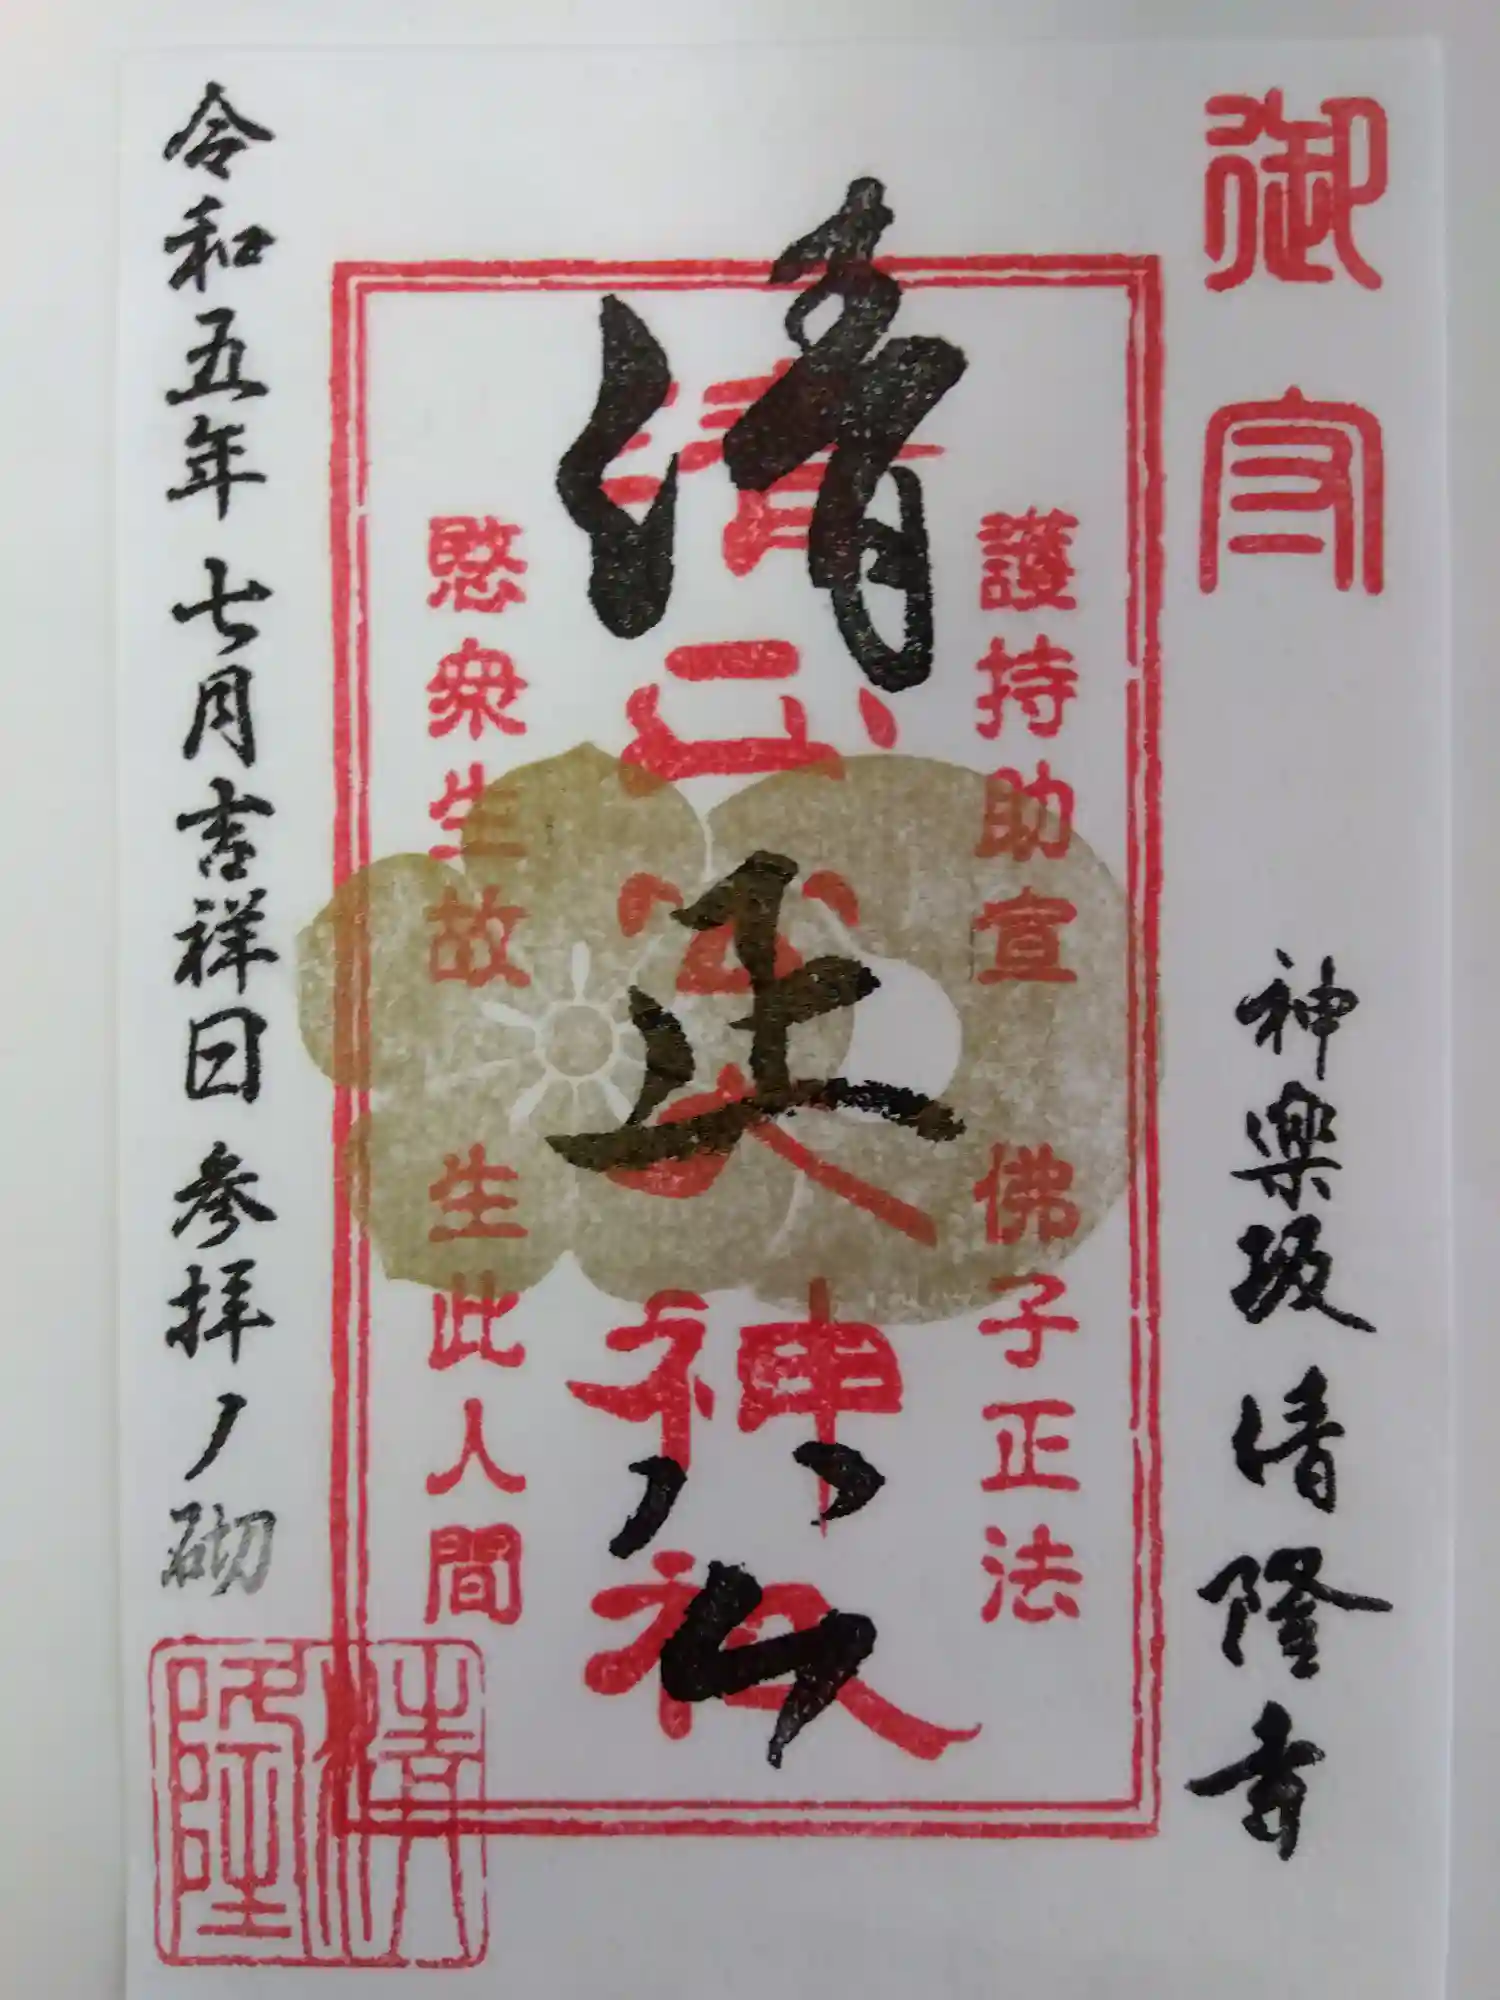 御守
神樂坂 清隆寺
護持助宣 佛子正法
清正公大神祇
清正公
愍衆生故 生此人間
令和五年 七月吉祥日 参拝ノ砌
清隆